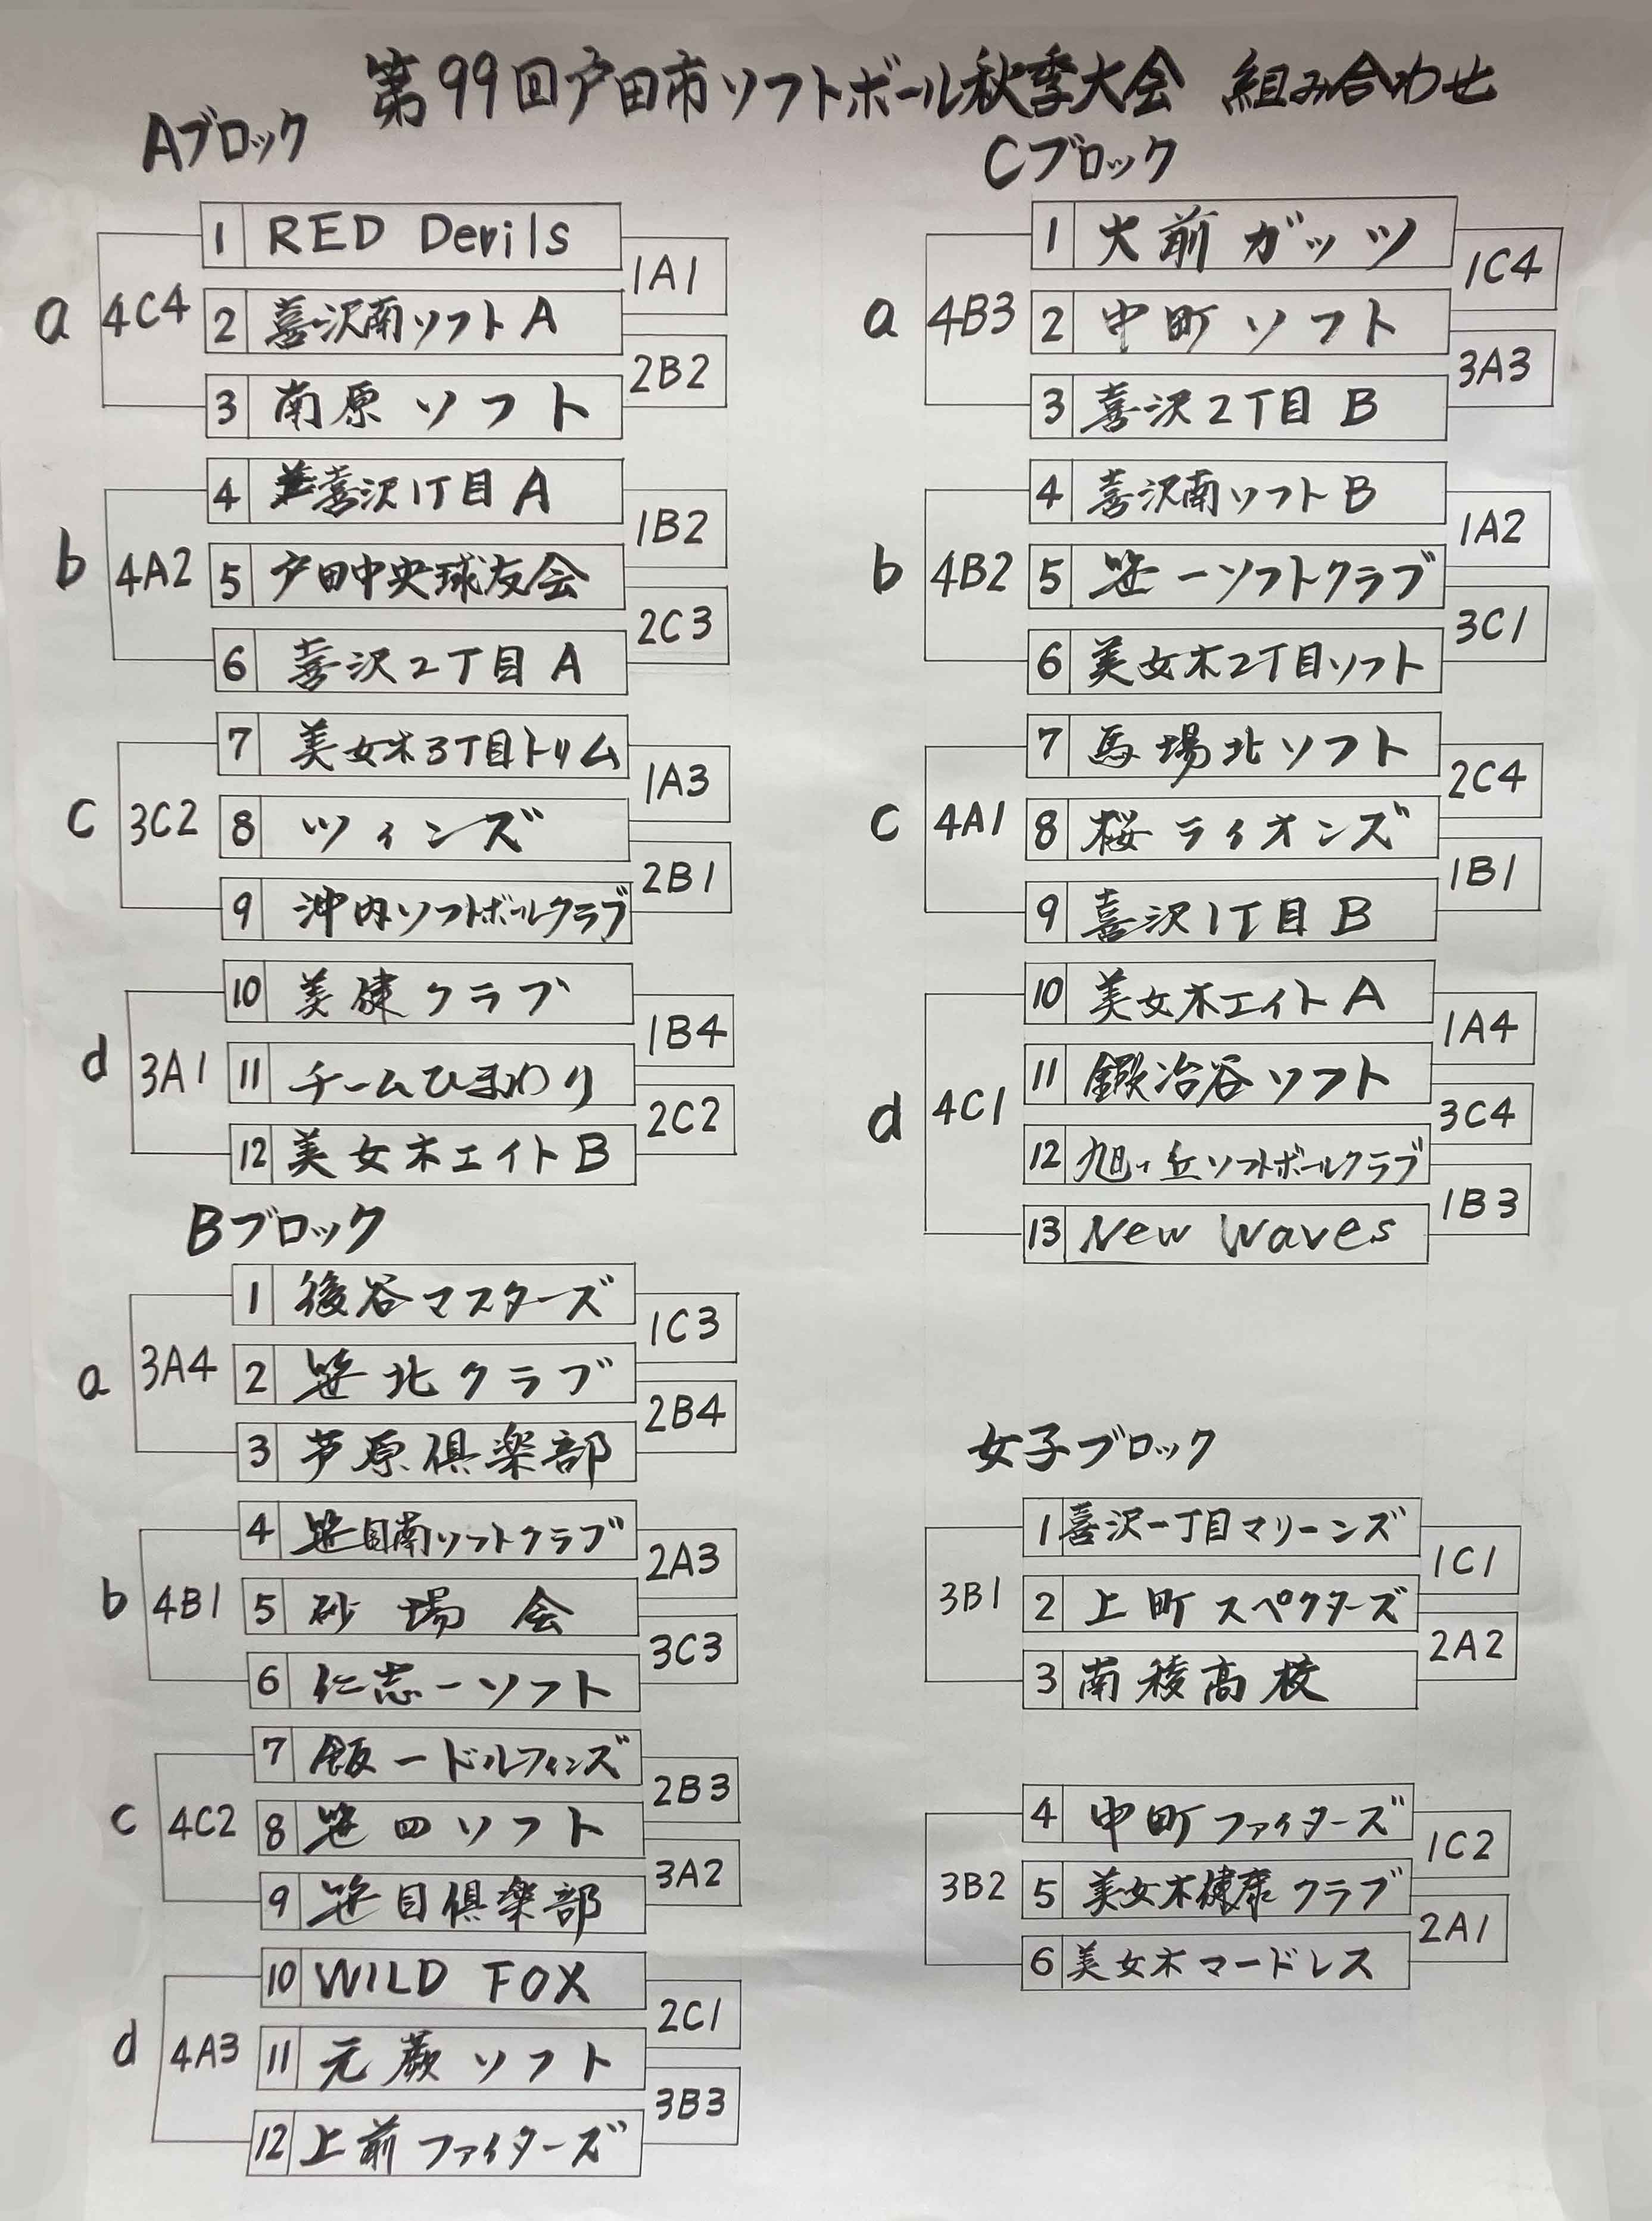 第99回戸田市ソフトボール秋季大会 組み合わせ
Aブロック
a
4C4
1 RED Devils
1A1
2 喜沢南ソフトA
2B2
3 南原ソフト
b
4A2
4 喜沢1丁目A
1B2
5 戸田中央球友会
2C3
6 喜沢2丁目A
c
3C2
7 美女木3丁目トリム
1A3
8 ツインズ
2B1
9 沖内ソフトボールクラブ
d
3A1
10 美健クラブ
1B4
11 チームひまわり
2C2
12 美女木エイトB
Bブロック
a
3A4
1 後谷マスターズ
1C3
2 笹北クラブ
2B4
3 芦原倶楽部
b
4B1
4 笹目南ソフトクラブ
2A3
5 砂場会
3C3
6 仁志一ソフト
c
4C2
7 飯一ドルフィンズ
2B3
8 笹四ソフト
3A2
9 笹目倶楽部
d
4A3
10 WILD FOX
2C1
11 元蕨ソフト
3B3
12 上前ファイターズ
Cブロック
a
4B3
1 大前ガッツ
1C4
2 中町ソフト
3A3
3 喜沢2丁目B
b
4B2
4 喜沢南ソフトB
1A2
5 笹一ソフトクラブ
3C1
6 美女木2丁目ソフト
c
4A1
7 馬場北ソフト
2C4
8 桜ライオンズ
1B1
9 喜沢1丁目B
d
4C1
10 美女木エイトA
1A4
11 鍛冶谷ソフト
3C4
12 旭ヶ丘ソフトボールクラブ
1B3
13 New Waves
女子ブロック
3B1
1 喜沢一丁目マリーンズ
1C1
2 上町スペクターズ
2A2
3 南稜高校
3B2
4 中町ファイターズ
1C2
5 美女木健康クラブ
2A1
6 美女木マードレス